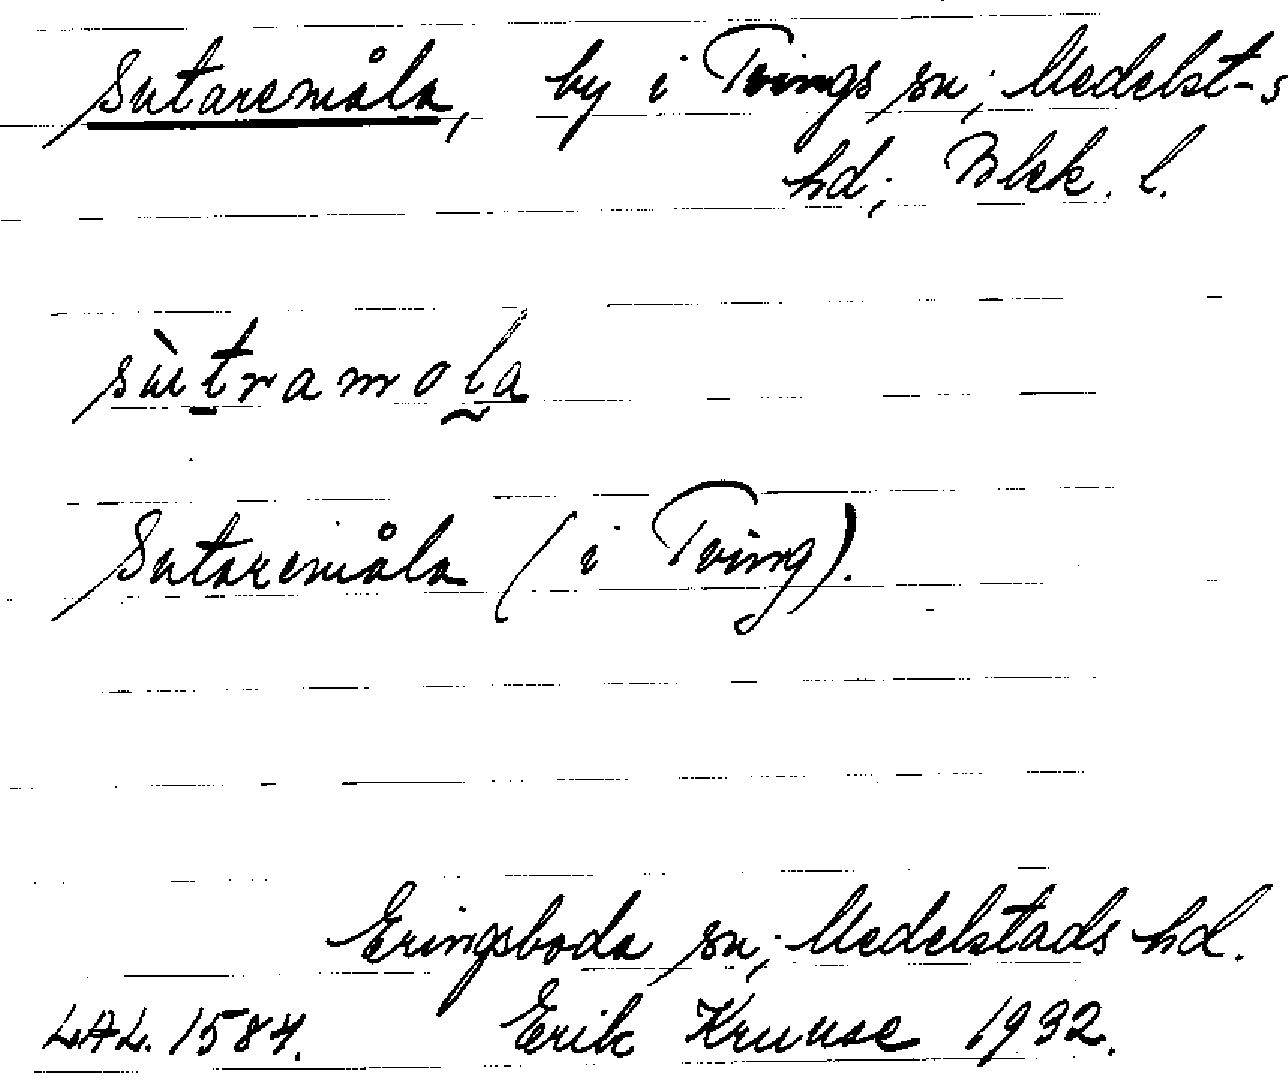 Sutaremåla, by i Tvings sn; Medelst-s
hd; Blek. l.
sùtramola
Sutaremåla (i Tving).
Eringsboda sn; Medelstads hd.
LAL. 1584. Erik Kruuse 1932.